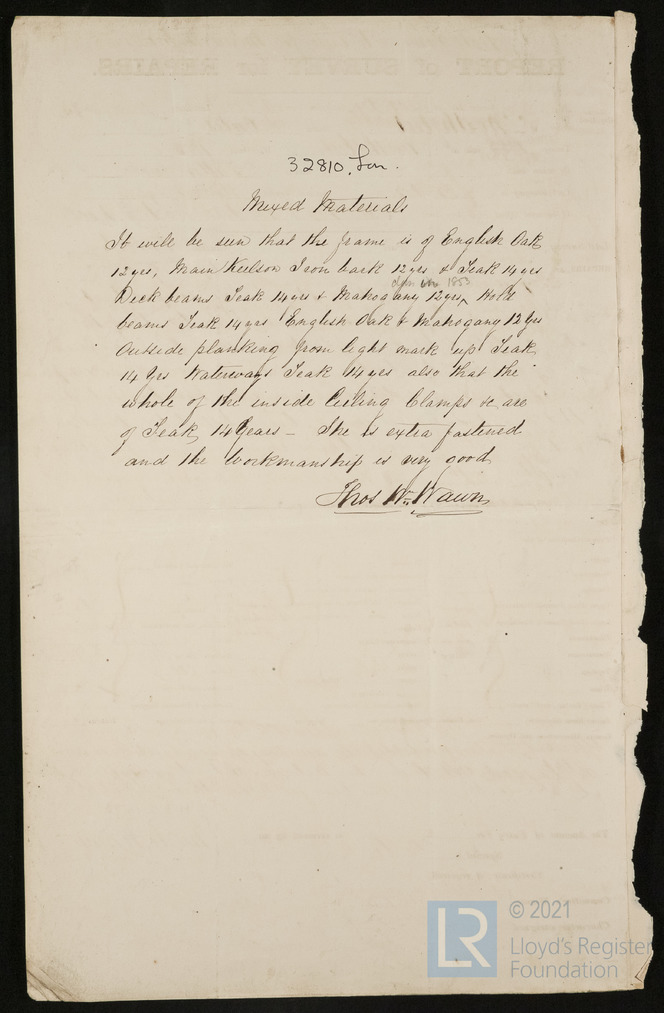 REPORT of SURVEY for REPAIRS.
32810. Lon.
Mixed Materials
It will be seen that the frame is of English Oak
12 yrs, Main Keelson Iron bark 12 yrs & Teak 14 yrs
1853
Deck beams Teak 14 yrs & Mahogany 12 yrs, Hold
beams Teak 14 yrs English Oak & Mahogany 12 Yrs
Outside planking from light mark up Teak
14 Yrs Waterways Teak 14 yrs also that the
whole of the inside Ceiling Clamps &c are
of Teak, 14 Years – She is extra fastened
and the Workmanship is very good
Thos Wm. Wawn
© 2021
LR
Lloyd's Register
Foundation